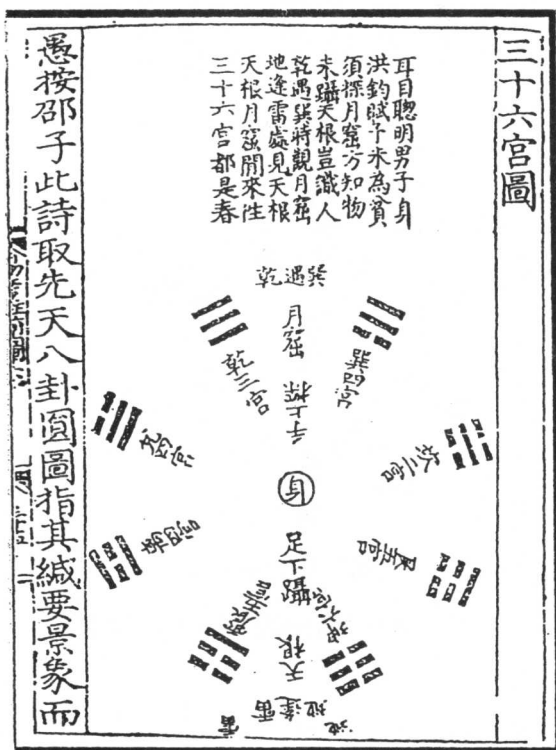 三十六宮圖
耳目聰明男子身
洪鈞賦予未為貧
須探月窟方知物
未躡天根豈識人
乾遇巽時觀月窟
地逢雷處見天根
天根月窟閒來往
三十六宮都是春
乾遇巽
月窟
手上探
乾三宮
巽四宮
兌四宮
坎五宮
離四宮
艮五宮
身
足下躡
震五宮
坤六宮
天根
地逢雷
愚按邵子此詩取先天八卦圓圖指其緘要景象而